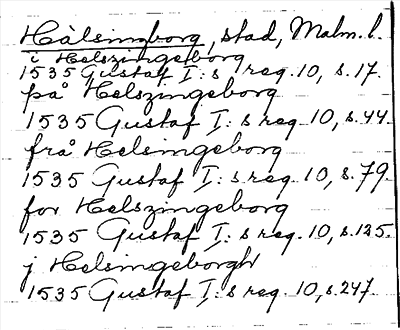 Hälsingborg, stad, Malm. l.
i Helszingeborg
1535 Gustaf I:s reg. 10, s. 17.
på Helszingeborg
1535 Gustaf I:s reg. 10, s. 44.
frå Helsingeborg
1535 Gustaf I:s reg. 10, s. 79.
for Helszingeborg
1535 Gustaf I:s reg. 10, s. 125.
j Helsingeborgh
1535 Gustaf I:s reg. 10, s. 247.